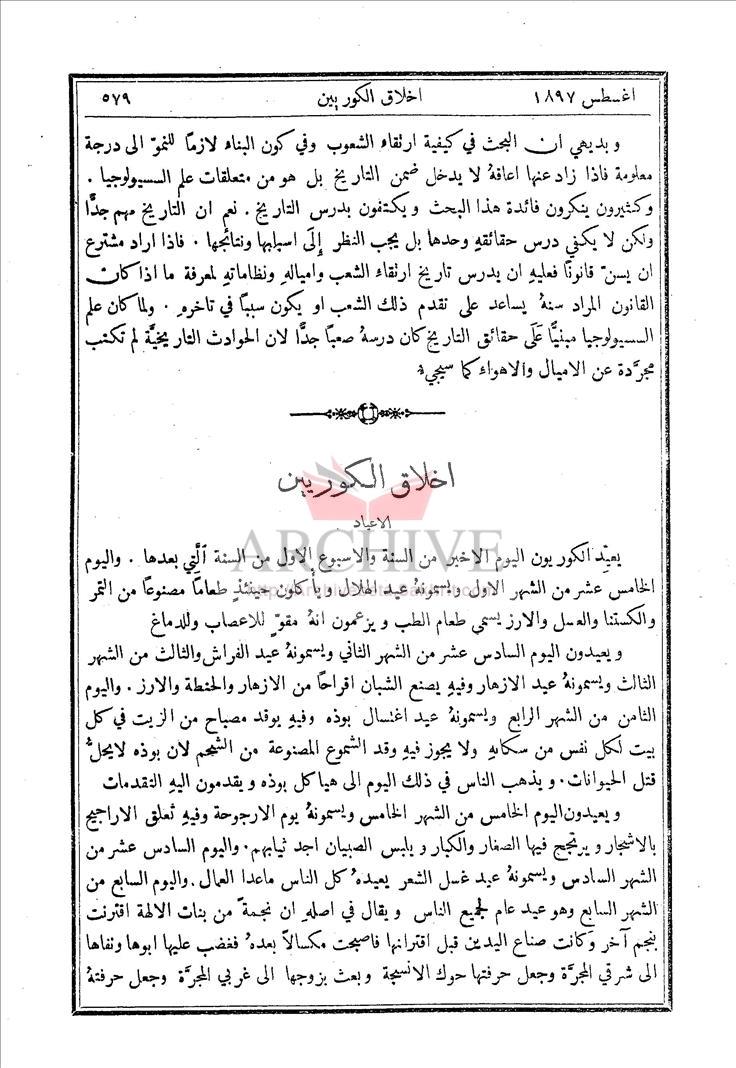 اغسطس ١٨٩٧ اخلاق الكوريين ٥٧٩
وبديهي ان البحث في كيفية ارتقاء الشعوب وفي كون البناء لازمًا للنموّ الى درجة
معلومة فاذا زاد عنها اعاقهُ لا يدخل ضمن التاريخ بل هو من متعلقات علم السسيولوجيا .
وكثيرون ينكرون فائدة هذا البحث ويكتفون بدرس التاريخ . نعم ان التاريخ مهم جدًّا
ولكن لا يكفي درس حقائقهِ وحدها بل يجب النظر إلَى اسبابها ونتائجها . فاذا اراد مشترع
ان يسنّ قانونًا فعليهِ ان يدرس تاريخ ارتقاء الشعب وامياله ونظاماتهِ لمعرفة ما اذا كان
القانون المراد سنهُ يساعد على تقدم ذلك الشعب او يكون سببًا في تاخرهِ . ولما كان علم
السسيولوجيا مبنيًّا عَلَى حقائق التاريخ كان درسهُ صعبًا جدًّا لان الحوادث التاريخيَّة لم تكتب
مجرَّدة عن الاميال والاهواء كما سيجيءُ
اخلاق الكوريين
ARCHIVE
الاعياد
يعيّد الكوريون اليوم الاخير من السنة والاسبوع الاول من السنة الَّتي بعدها . واليوم
الخامس عشر من الشهر الاول ويسمونهُ عيد الهلال ويأكلون حينئذٍ طعامًا مصنوعًا من التمر
والكستنا والعسل والارز يسمى طعام الطب ويزعمون انهُ مقوٍّ للاعصاب وللدماغ
ويعيدون اليوم السادس عشر من الشهر الثاني ويسمونهُ عيد الفراش والثالث من الشهر
الثالث ويسمونهُ عيد الازهار وفيهِ يصنع الشبان اقراحًا من الازهار والحنطة والارز . واليوم
الثامن من الشهر الرابع ويسمونهُ عيد اغتسال بوذه وفيهِ يوقد مصباح من الزيت في كل
بيت لكل نفس من سكانهِ ولا يجوز فيهِ وقد الشموع المصنوعة من الشحم لان بوذه لا يحلّ
قتل الحيوانات . ويذهب الناس في ذلك اليوم الى هياكل بوذه ويقدمون اليهِ التقدمات
ويعيدون اليوم الخامس من الشهر الخامس ويسمونهُ يوم الارجوحة وفيهِ تعلق الاراجيح
بالاشجار ويرتجح فيها الصغار والكبار ويلبس الصبيان اجد ثيابهم . واليوم السادس عشر من
الشهر السادس ويسمونهُ عيد غسل الشعر يعيدهُ كل الناس ماعدا العمال . واليوم السابع من
الشهر السابع وهو عيد عام لجميع الناس ويقال في اصلهِ ان نجمةً من بنات الالهة اقترنت
بنجم آخر وكانت صناع اليدين قبل اقترانها فاصبحت مكسالًا بعدهُ فغضب عليها ابوها ونفاها
الى شرقي المجرَّة وجعل حرفتها حوك الانسجة وبعث بزوجها الى غربي المجرَّة وجعل حرفتهُ